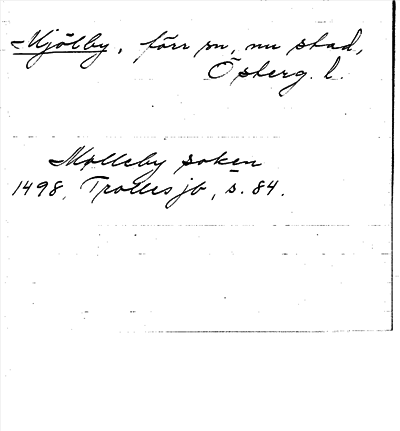 Mjölby, förr sn, nu stad,
Österg. l.
Mølleby soken
1498, Trolles jb, s. 84.